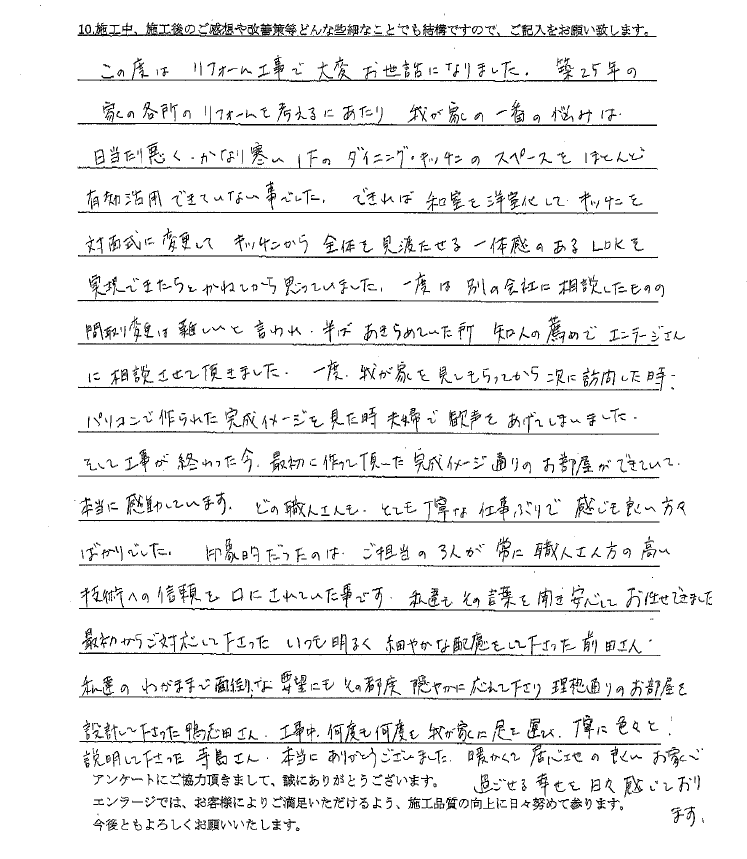 10.施工中、施工後のご感想や改善策等どんな些細なことでも結構ですので、ご記入をお願い致します。
この度は リフォーム工事で 大変 お世話になりました。 築25年の
家の各所の リフォームを考えるにあたり 我が家の 一番の悩みは
日当たり悪く・かなり寒い 1Fの ダイニング・キッチンの スペースを ほとんど
有効活用できていない事でした。 できれば 和室を洋室化して キッチンを
対面式に変更して キッチンから 全体を見渡たせる 一体感のあるLDKを
実現できたらとかねてから思っていました。一度は 別の会社に相談したものの
間取り変更は難しいと言われ・半ば あきらめていた所 知人の薦めで エンラージさん
に相談させて頂きました。 一度、我が家を見てもらってから 次に訪問した時、
パソコンで作られた完成イメージを見た時 夫婦で 歓声をあげてしまいました。
そして工事が 終わった今、最初に作って頂いた完成イメージ通りの お部屋ができていて、
本当に感動しています。 どの職人さんも、とても丁寧な仕事ぶりで 感じも良い方々
ばかりでした。 印象的だったのは、ご担当の3人が 常に 職人さん方の高い
技術への信頼を 口にされていた事です。 私達も その言葉を聞き安心して お任せできました
最初からご対応して下さった いつも明るく 細やかな配慮をして下さった前田さん、
私達の わがままで面倒な 要望にも その都度 穏やかに応れて下さり 理想通りのお部屋を
設計して下さった鴨志田さん、工事中、何度も何度も我が家に足を運び、丁寧に色々と
説明して下さった 寺島さん、本当にありがとうございました。暖かくて 居心地の良い お家で
過ごせる幸せを日々感じており
ます。
アンケートにご協力頂きまして、誠にありがとうございます。
エンラージでは、お客様によりご満足いただけるよう、施工品質の向上に日々努めて参ります。
今後ともよろしくお願いいたします。